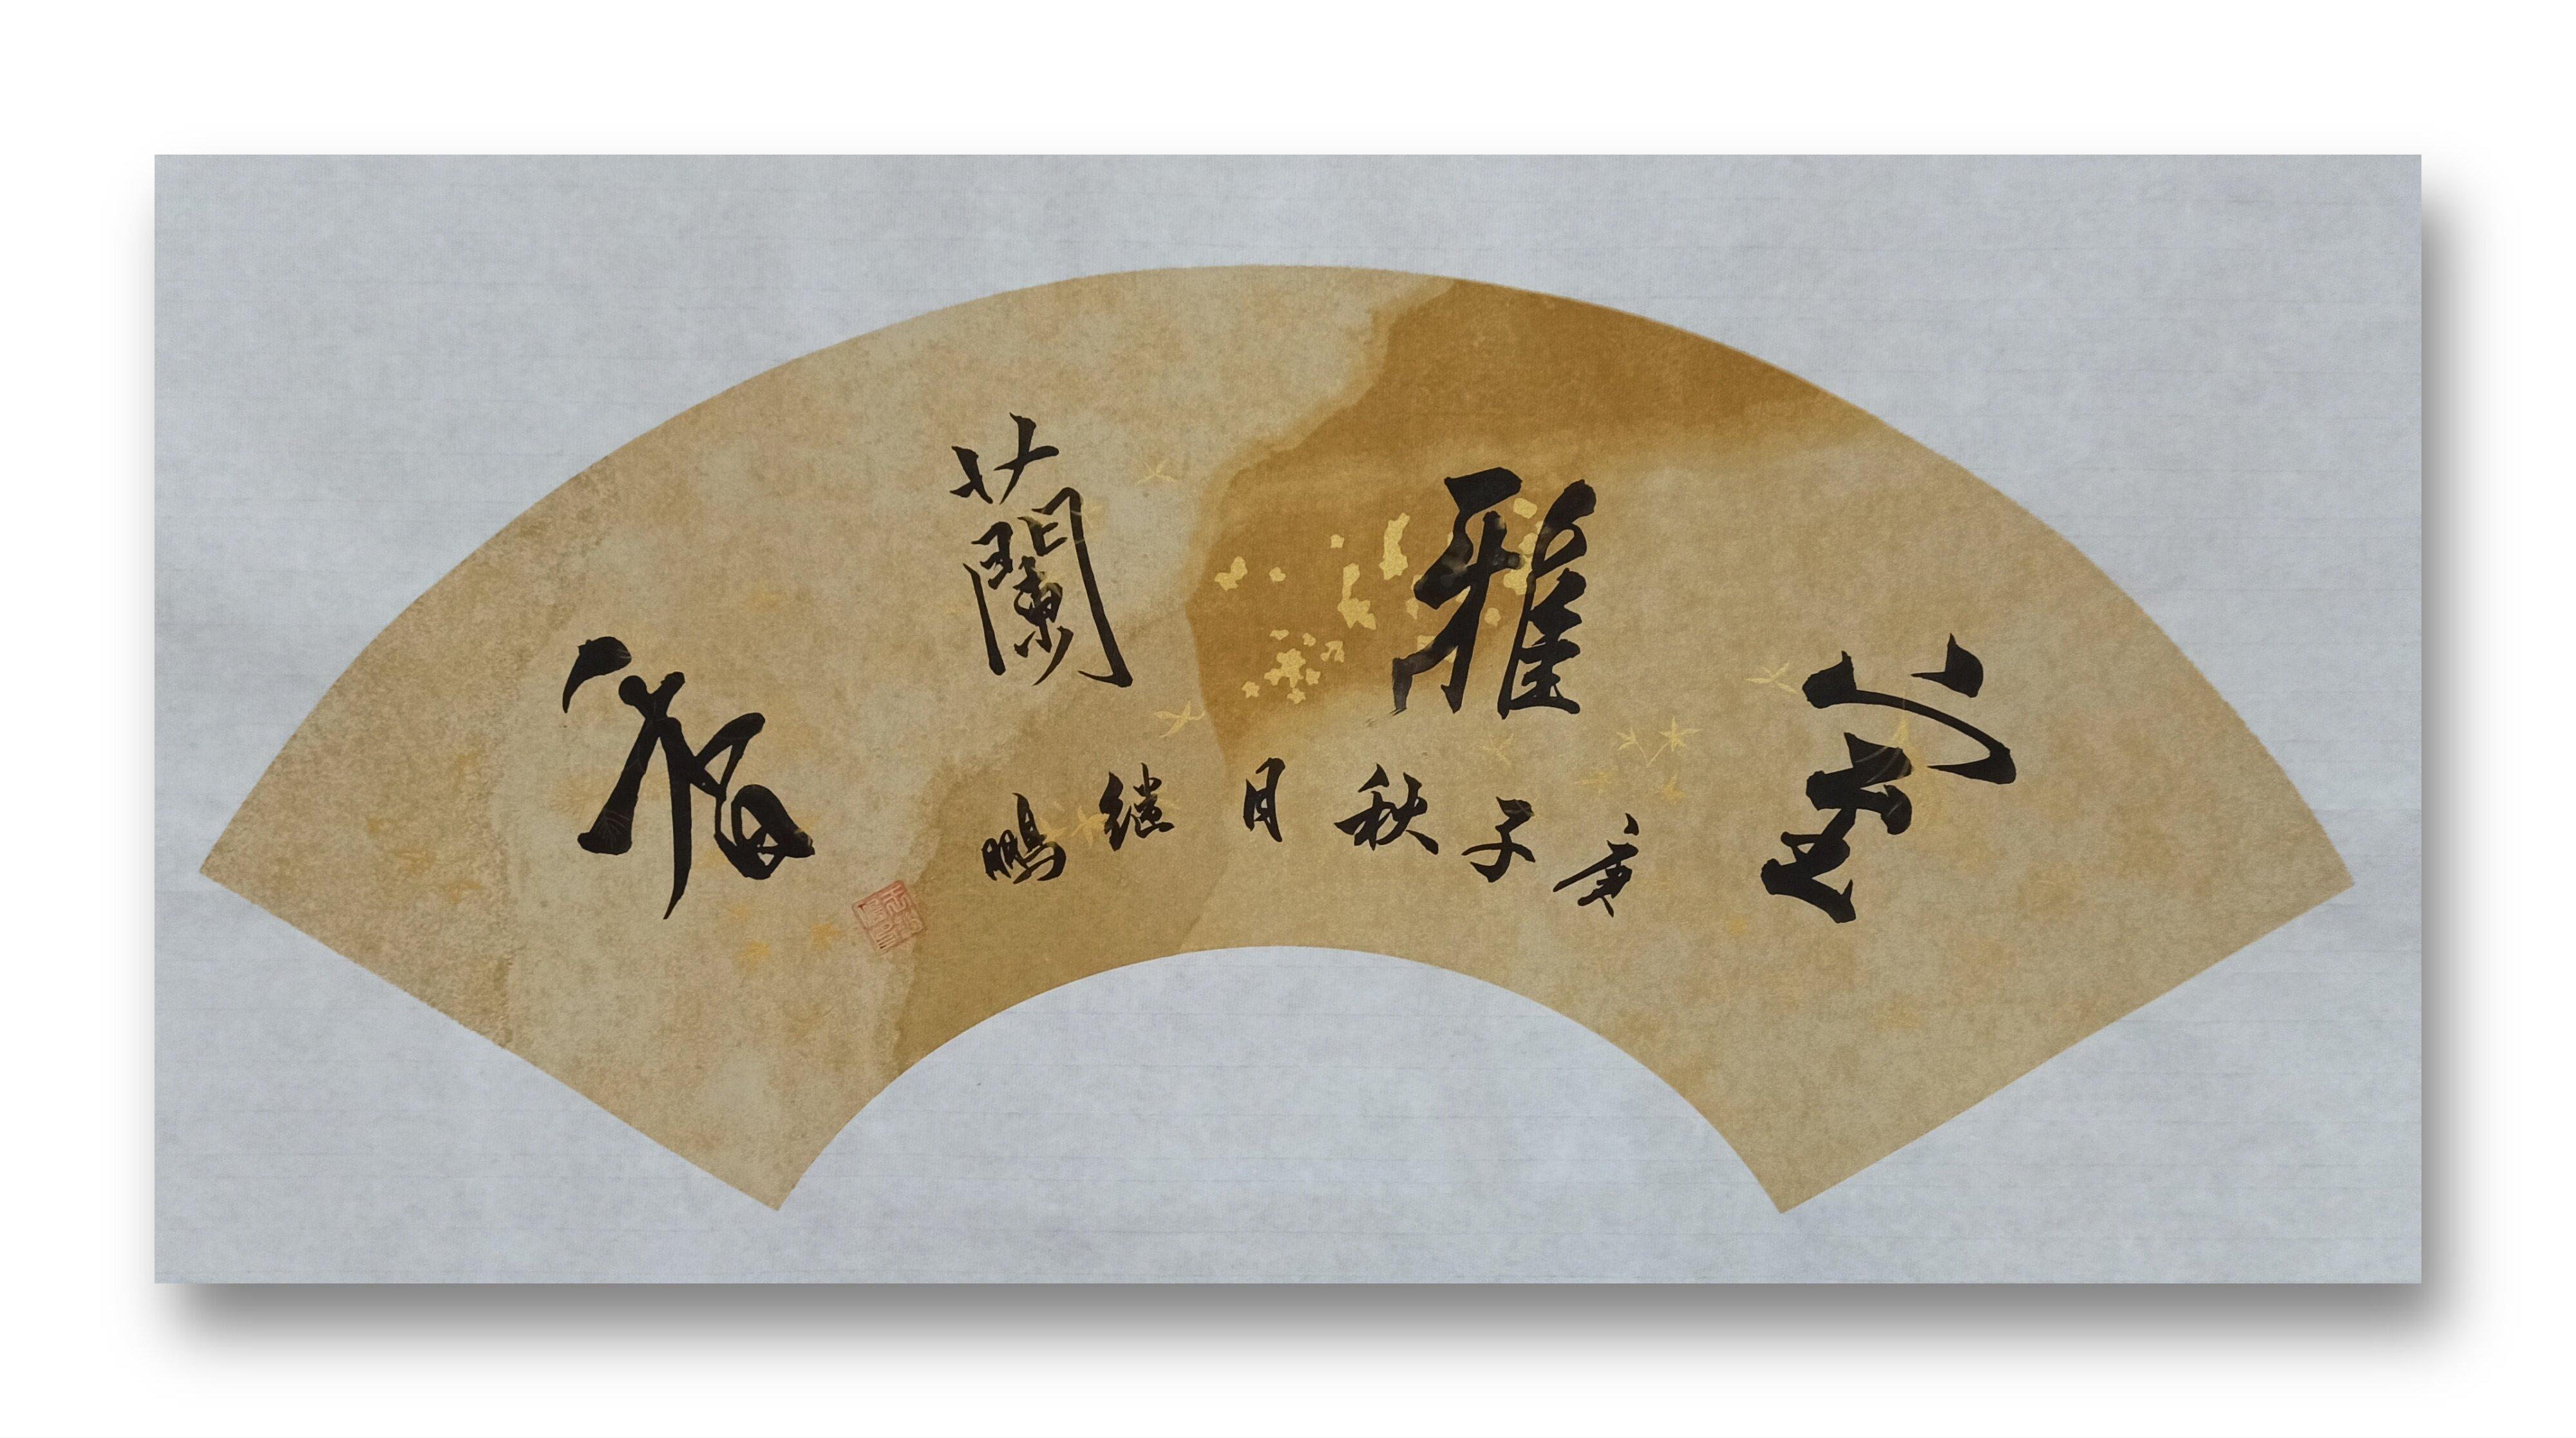 堂雅蘭香
庚子秋月继鹏